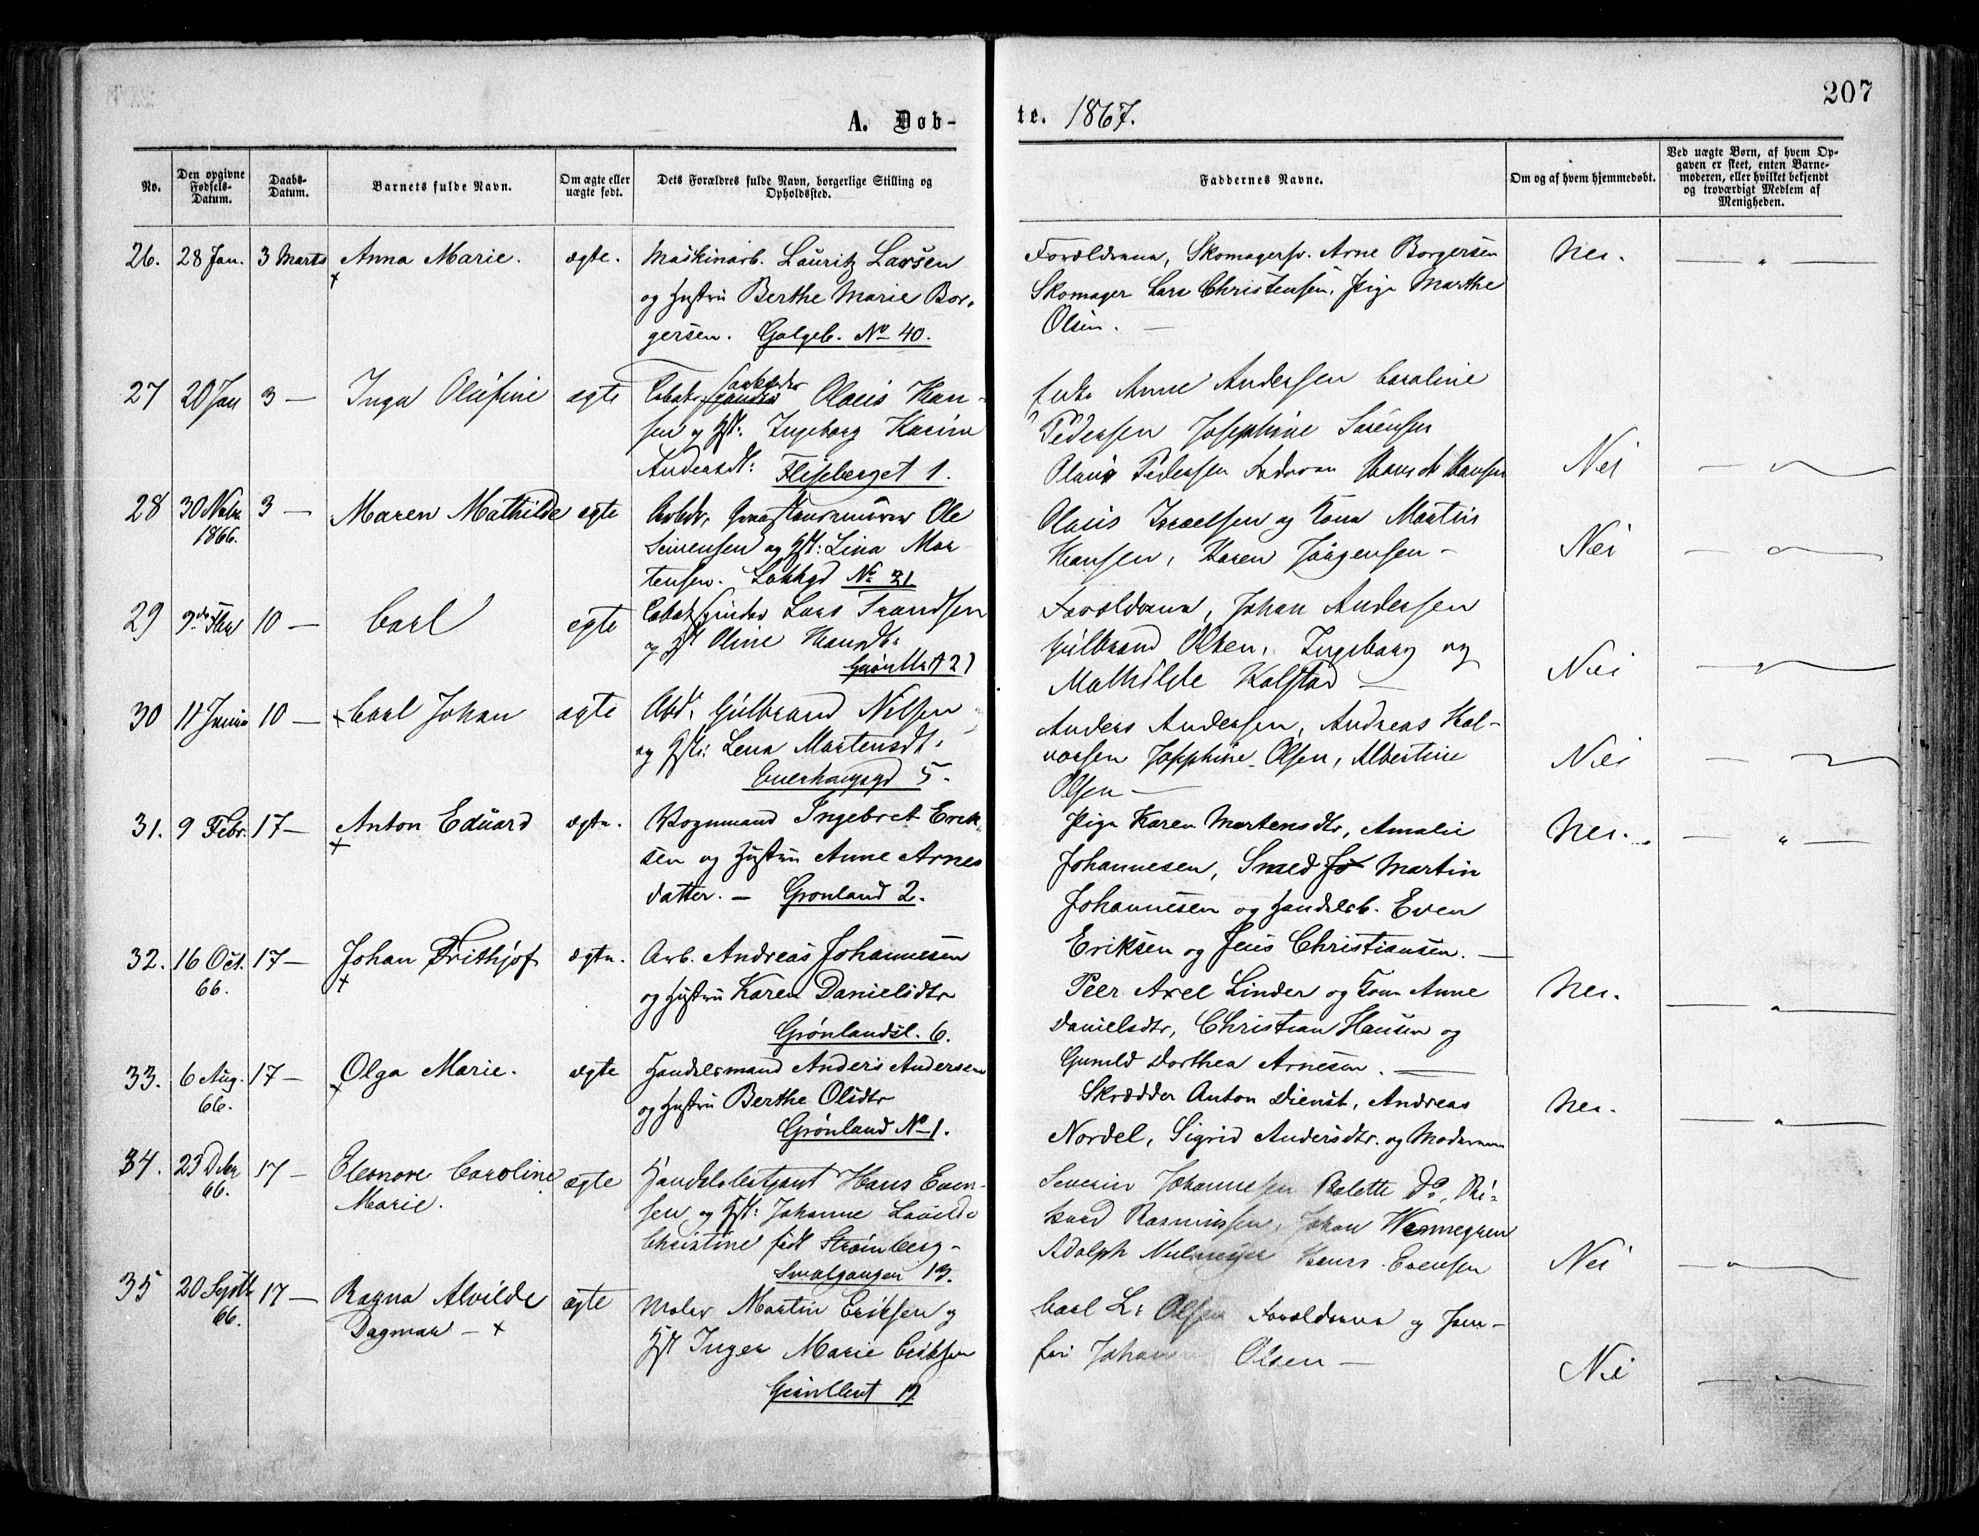 207
A. Døb-
te. 1867.
No.
Den opgivne Fødsels-Datum.
Daabs-Datum.
Barnets fulde Navn.
Om ægte eller uægte født.
Dets Forældres fulde Navn, borgerlige Stilling og Opholdssted.
Faddernes Navne.
Om og af hvem hjemmedøbt.
Ved uægte Børn, af hvem Opgaven er skeet, enten Barnemoderen, eller hvilket bekjendt og troværdigt Medlem af Menigheden.
26. 28 Jan. 3 Marts Anna Marie. ægte. Maskinarb. Lauritz Larsen
og Hustru Berthe Marie Bor-
gersen. Galgeb. No 40.
Forældrene, Skomagersv. Arne Borgersen Nei.
Skomager Lars Christensen, Pige Marthe
Olsen. —
27 20 Jan 3 — Inga Olufine ægte Olaus Han-
sen og Hst: Ingeborg Karine
Andersdt: Flisberget 1.
Enke Anne Andersen Caroline
Pedersen Josephine Sørensen
Olaus Pedersen Faderen Hansen Nei
28 30 Novbr 1866. 3 — Maren Mathilde ægte Ole
Simensen og Hst: Lina Mor-
tensen. Lakkgd No 21
Olaus Israelsen og Kone Martin
Hansen, Karen Jørgensen — Nei
29 10 — Carl ægte Lars Trandsen
og Hst Oline Hansdt:
Forældrene, Johan Andersen
Gulbrand Olsen, Ingeborg og
Mathilde Kolstad — Nei
30 11 10 — Carl Johan ægte Arbd. Gulbrand Nilsen
og Hst: Lena Mortensdt.
Enerhaugsgd 5.
Anders Andersen, Andreas Hal-
vorsen Josephine Olsen, Albertine Nei
Olsen —
31. 9 Febr. 17 — Anton Eduard ægte. Vognmand Ingebret Erik-
sen og Hustru Anne Arnes
datter. — Grønland 2.
Pige Karen Mortensdtr, Amalie Nei.
Johannesen, Smed Martin
Johannesen og Handelsb. Even
Eriksen og Jens Christiansen. —
32. 16 Oct. 66. 17 — Johan Frithjof ægte. Arb. Andreas Johannesen
og Hustru Karen Danielsdtr
Grønlandsl. 6.
Peer Axel Linder og Kone Anne Nei.
Danielsdtr, Christian Hansen og
Gunild Dorthea Arnesen. —
33. 6 Aug. 66. 17 — Olga Marie. ægte Handelsmand Anders Andersen
og Hustru Berthe Olsdtr
Grønland No 1.
Skrædder Anton Dienst, Andreas Nei.
Nordel, Sigrid Andersdtr. og Moderen
34. 23 Dcbr 66. 17 — Eleonore Caroline ægte Handelsbetjent Hans Even-
Marie. sen og Hst: Johanne Lovilde
Christine født Strømberg —
Smalgangen 13.
Severin Johannesen Bolette Do, Ri-
kard Rasmussen, Johan Wennegren
Adolph Hans Evensen Nei
35 20 Septbr 66. 17 — Ragna Alvilde ægte Maler Martin Eriksen og
Dagmar — Hst Inger Marie Eriksen
Carl L: Olsen Forældrene og Jom-
fru Johan Olsen — Nei